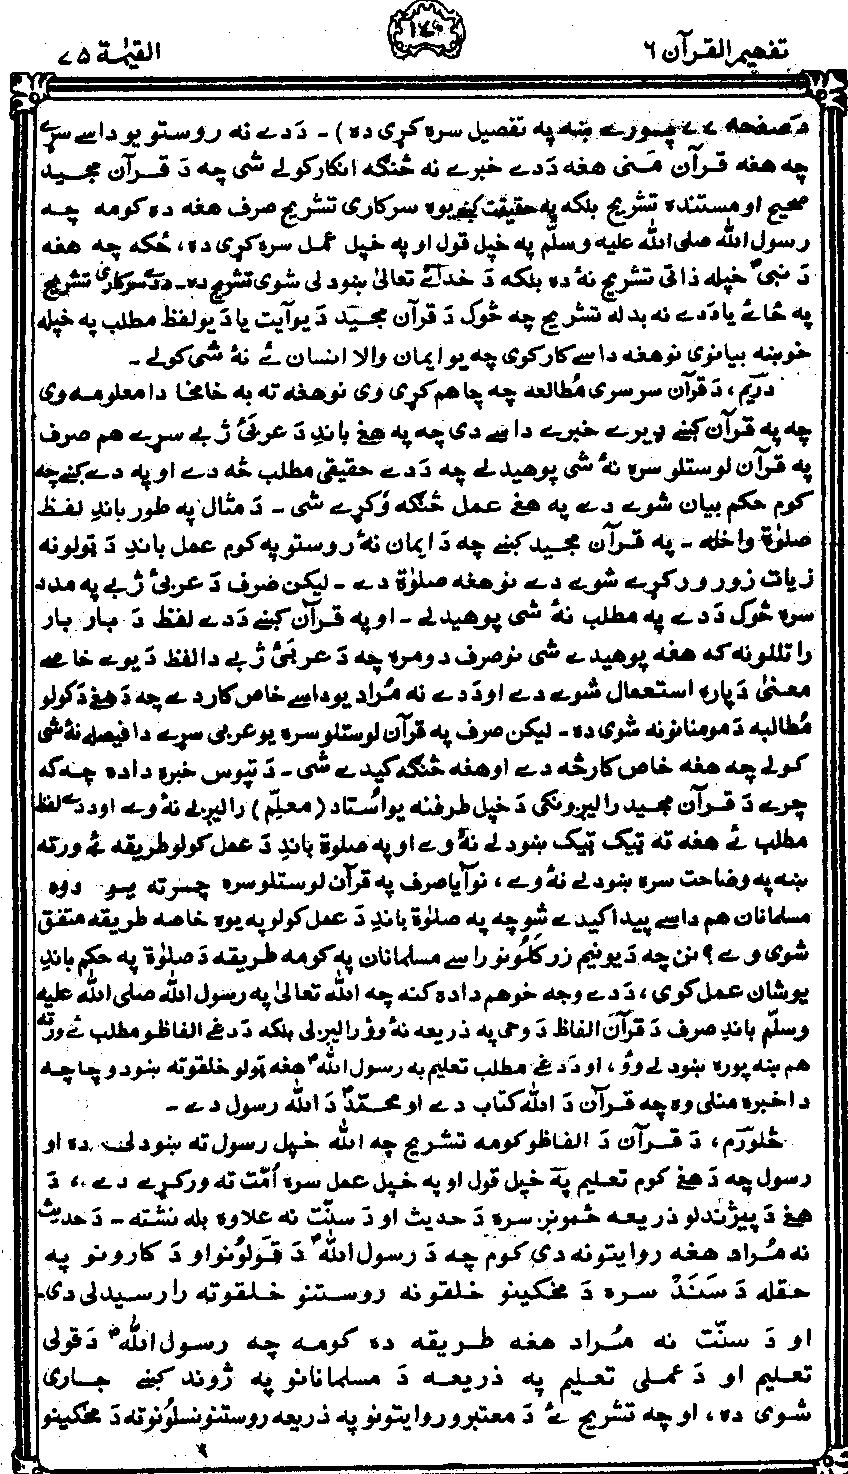 تفهیم القرآن ۶
القیٰمة ۷۵
دَ صفحه ۷۷ پسورے ښه په تفصیل سره کړی ده) ۔ دَدے نه روستو یو داسے سړے
چه هغه قرآن مَنی هغه دَدے خبرے نه څنګه انکار کولے شی چه دَ قرآن مجید
صحیح او مستنده تشریح بلکه په حقیقت کښے یوه سرکاری تشریح صرف هغه ده کومه چه
رسول الله صلی الله علیه وسلّم په خپل قول او په خپل عمل سره کړی ده، ځکه چه هغه
دَ نبیؐ خپله ذاتی تشریح نهٔ ده بلکه دَ خدائے تعالیٰ ښودلی شوی تشریح ده۔ دَدے سرکاری تشریح
په ځائے یا دَدے نه بدله تشریح چه څوک دَ قرآن مجید دَ یو آیت یا دَ یو لفظ مطلب په خپله
خوښه بیانوی نو هغه داسے کار کوی چه یو ایمان والا انسان ئے نهٔ شی کولے ۔
دریٔم، دَ قرآن سرسری مُطالعه چه چا هم کړی وی نو هغه ته به خامخا دا معلومه وی
چه په قرآن کښے ډیرے خبرے داسے دی چه په هغے باندِ دَ عربیٔ ژبے سړے هم صرف
په قرآن لوستلو سره نهٔ شی پوهیدلے چه دَدے حقیقی مطلب څه دے او په دے کښے چه
کوم حکم بیان شوے دے په هغے عمل څنګه وُکړے شی ۔ دَ مثال په طور باندِ لفظ
صلوٰة واخله ۔ په قرآن مجید کښے چه دَ ایمان نهٔ روستو په کوم عمل باندِ دَ ټولو نه
زیات زور ورکړے شوے دے نو هغه صلوٰة دے ۔ لیکن صرف دَ عربیٔ ژبے په مدد
سره څوک دَدے په مطلب نهٔ شی پوهیدلے ۔ او په قرآن کښے دَدے لفظ دَ بار بار
راتللو نه که هغه پوهیدے شی نو صرف دومره چه دَ عربیٔ ژبے دا لفظ دَ یوے خاصے
معنیٰ دَپاره استعمال شوے دے او دَدے نه مُراد یو داسے خاص کار دے چه دَ هغے دَ کولو
مُطالبه دَ مومنانو نه شوی ده ۔ لیکن صرف په قرآن لوستلو سره یو عربی سړے دا فیصله نهٔ شی
کولے چه هغه خاص کار څه دے او هغه څنګه کیدے شی ۔ دَ تپوس خبره دا ده چه که
چرے دَ قرآن مجید رالیږونکی دَ خپل طرفنه یو اُستاد (معلِّم) رالیږلے نهٔ وے او دَدے لفظ
مطلب ئے هغه ته ټیک ټیک ښودلے نهٔ وے او په صلوٰة باندِ دَ عمل کولو طریقه ئے ورته
ښه په وضاحت سره ښودلے نهٔ وے، نو آیا صرف په قرآن لوستلو سره چرته یو دوه
مسلمانان هم داسے پیدا کیدے شو چه په صلوٰة باندِ دَ عمل کولو په یوه خاصه طریقه متفق
شوی وے؟ نن چه دَ یونیم زر کلُونو راسے مسلمانان په کومه طریقه دَ صلوٰة په حکم باندِ
یوشان عمل کوی، دَدے وجه خو هم دا ده کنه چه الله تعالیٰ په رسول الله صلی الله علیه
وسلّم باندِ صرف دَ قرآن الفاظ دَ وحی په ذریعه نهٔ وُو رالیږلی بلکه دَدغے الفاظو مطلب ئے ورته
هم ښه پوره ښودلے وُو، او دَدغے مطلب تعلیم به رسول اللهؐ هغه ټولو خلقو ته ښودو چا چه
دا خبره منلی وه چه قرآن دَ الله کتاب دے او محمّدؐ دَ الله رسول دے ۔
څلورَم، دَ قرآن دَ الفاظو کومه تشریح چه الله خپل رسول ته ښودلے ده او
رسول چه دَ هغے کوم تعلیم په خپل قول او په خپل عمل سره اُمّت ته ورکړے دے، دَ
هغے دَ پیژندلو ذریعه څمونږ سره دَ حدیث او دَ سنّت نه علاوه بله نشته ۔ دَ حدیث
نه مُراد هغه روایتونه دی کوم چه دَ رسول اللهؐ دَ قولُونو او دَ کارونو په
حقله دَ سَنَدْ سره دَ مخکینو خلقو نه روستنو خلقو ته رارسیدلی دی،
او دَ سنّت نه مُراد هغه طریقه ده کومه چه رسول اللهؐ دَ قولی
تعلیم او دَ عملی تعلیم په ذریعه دَ مسلمانانو په ژوند کښے جاری
شوی ده، او چه تشریح ئے دَ معتبرو روایتونو په ذریعه روستنو نسلُونو ته دَ مخکینو